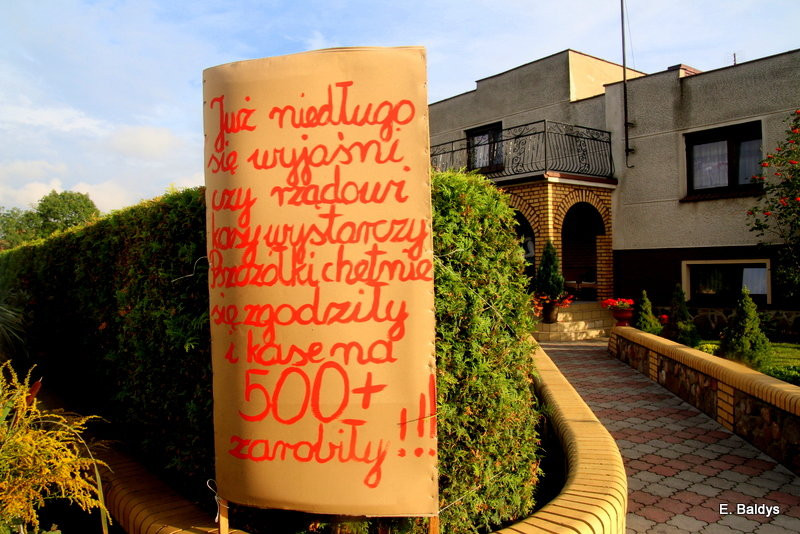 Już niedługo
się wyjaśni
czy rządowi
kasy wystarczy
Pszczółki chętnie
się zgodziły
i kasę na
500+
zarobiły !!!
E. Baldys